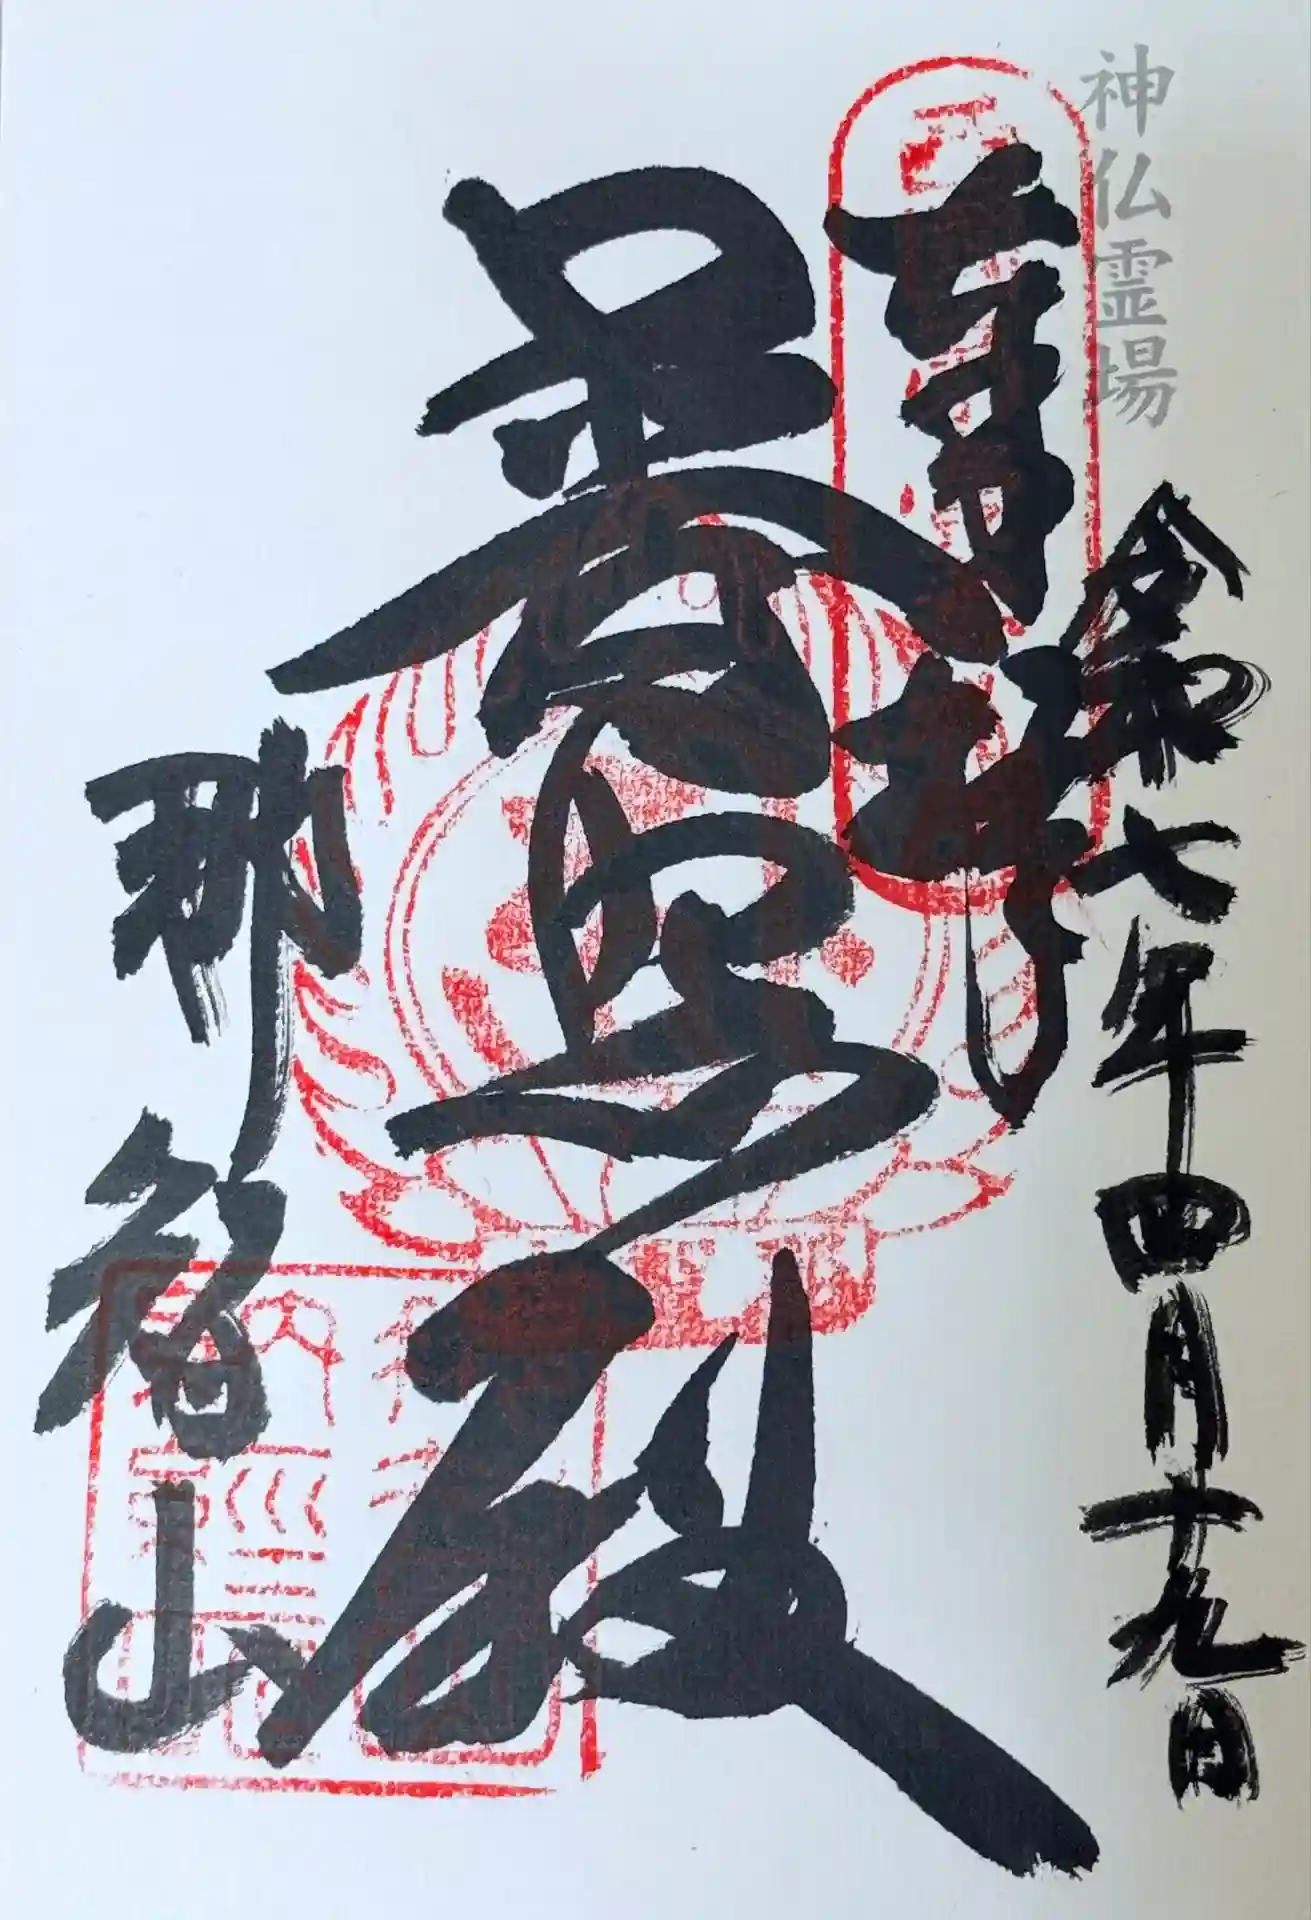 神仏霊場
令和七年四月十九日
奉拝
普照殿
那智山